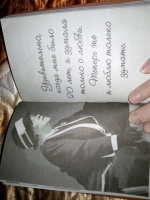 Удивительно,
когда мне было
20 лет, я думала
только о любви.
Теперь же
я люблю только
думать.